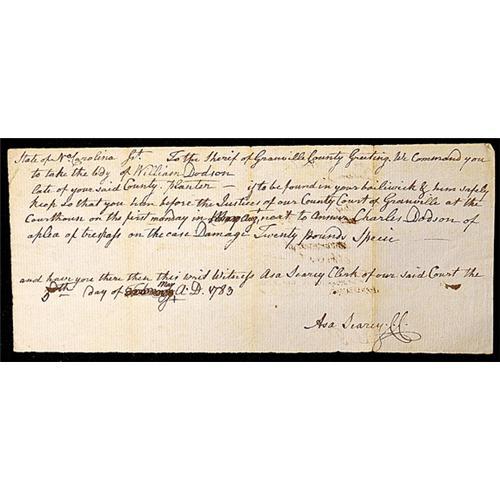 State of No Carolina Sct. To the Sherif of Granville County Greeting. We Command you
to take the body of William Dodson
late of your said County Planter — if to be found in your bailiwick & him safely
keep So that you have before the Justices of our County Court of Granville at the
Courthouse on the first monday in next to Answer Charles Dodson of
a plea of trespass on the case Damage Twenty Pounds Specie —
and have you there then this writ Witness Asa Searcy Clerk of our said Court the
5th day of May A.D. 1783
Asa Searcy. C.C.